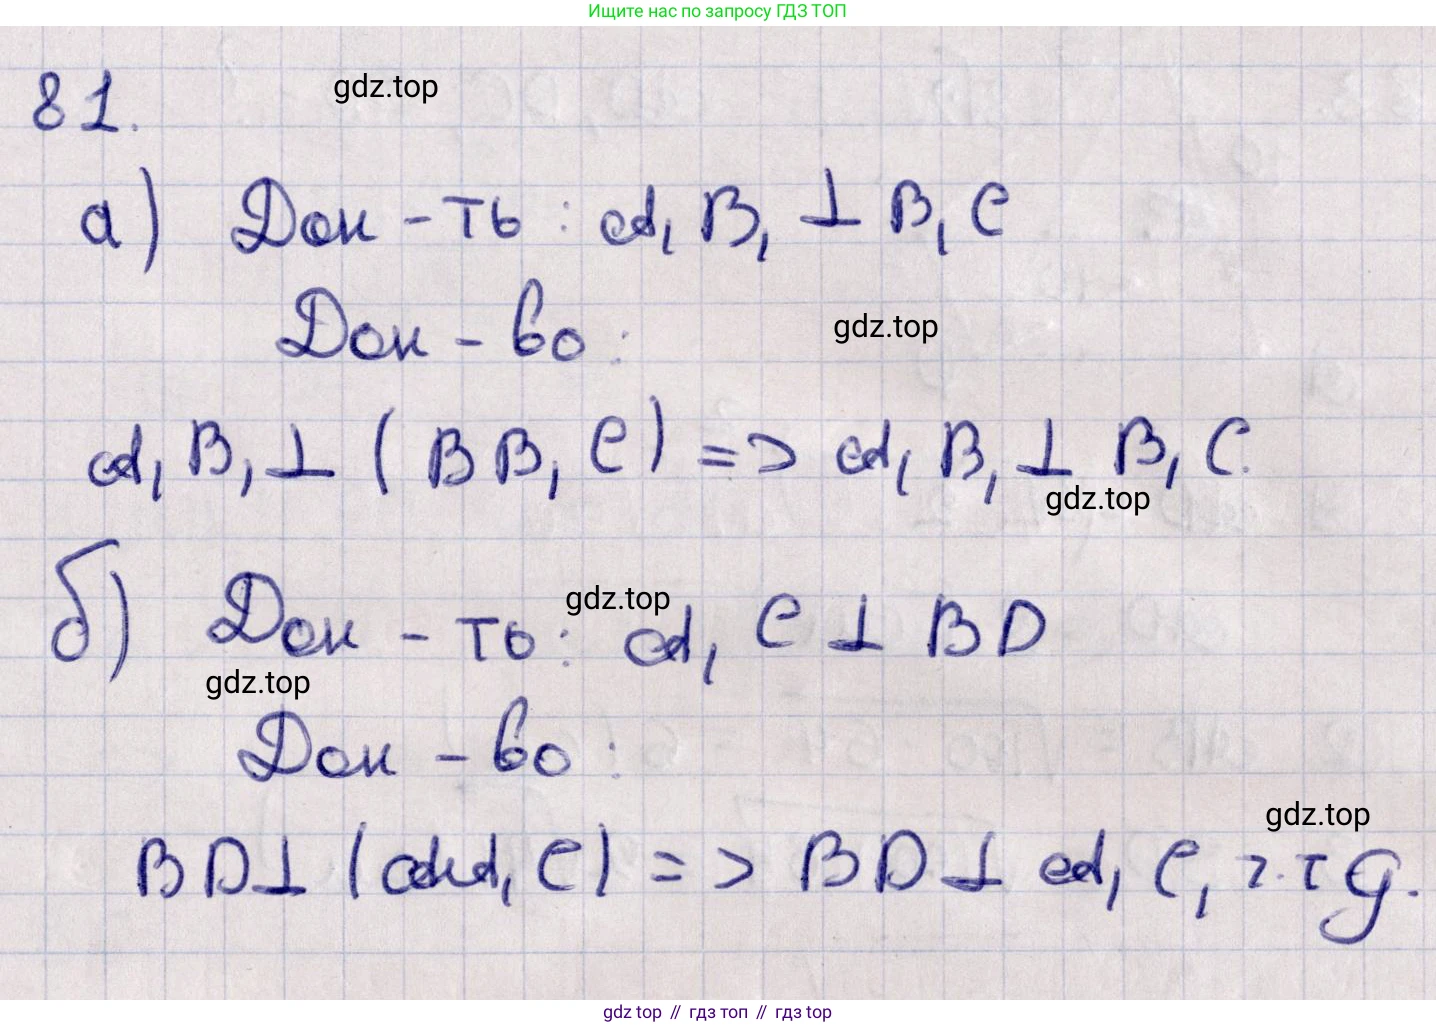 Ищите нас по запросу ГДЗ ТОП
81.
gdz.top
а) Док-ть: A₁B₁ ⊥ B₁C
Док-во:
gdz.top
A₁B₁ ⊥ (BB₁C) => A₁B₁ ⊥ B₁C.
gdz.top
б) Док-ть: A₁C ⊥ BD
gdz.top
gdz.top
Док-во:
gdz.top
BD ⊥ (AA₁C) => BD ⊥ A₁C, ч.т.д.
gdz top // гдз топ // гдз top